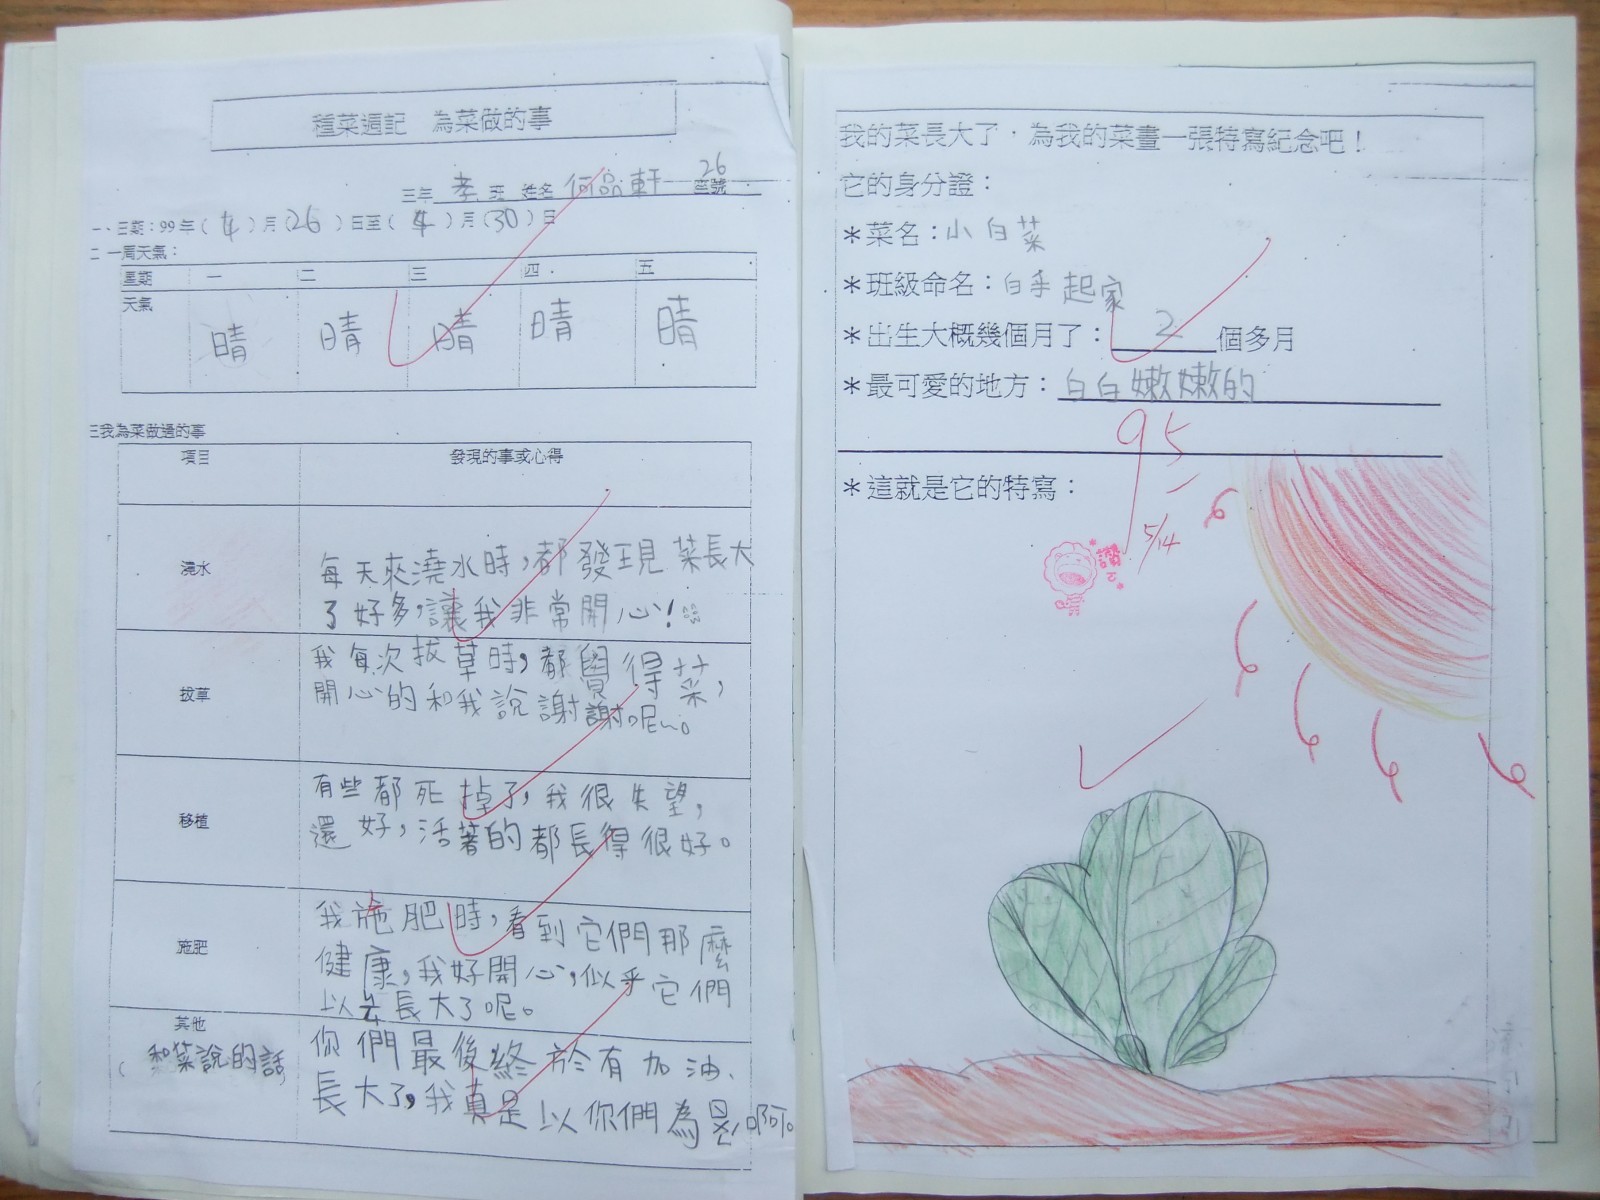 種菜週記 為菜做的事
三年 孝 班 姓名 何 軒 26 座號
一、日期：99年（4）月（26）日至（4）月（30）日
二 一周天氣：
星期 一 二 三 四 五
天氣 晴 晴 晴 晴 晴
三我為菜做過的事
項目 發現的事或心得
澆水
每天來澆水時，都發現菜長大
了好多，讓我非常開心！
拔草
我每次拔草時，都覺得菜，
開心的和我說謝謝呢~。
移植
有些都死掉了，我很失望，
還好，活著的都長得很好。
施肥
我施肥時，看到它們那麼
健康，我好開心，似乎它們
以去長大了呢。
其他
（和菜說的話）
你們最後終於有加油、
長大了，我真是以你們為 啊
我的菜長大了，為我的菜畫一張特寫紀念吧！
它的身分證：
＊菜名：小白菜
＊班級命名：白手起家
＊出生大概幾個月了： 2 個多月
＊最可愛的地方：白白嫩嫩的
95
＊這就是它的特寫：
5/14
讚